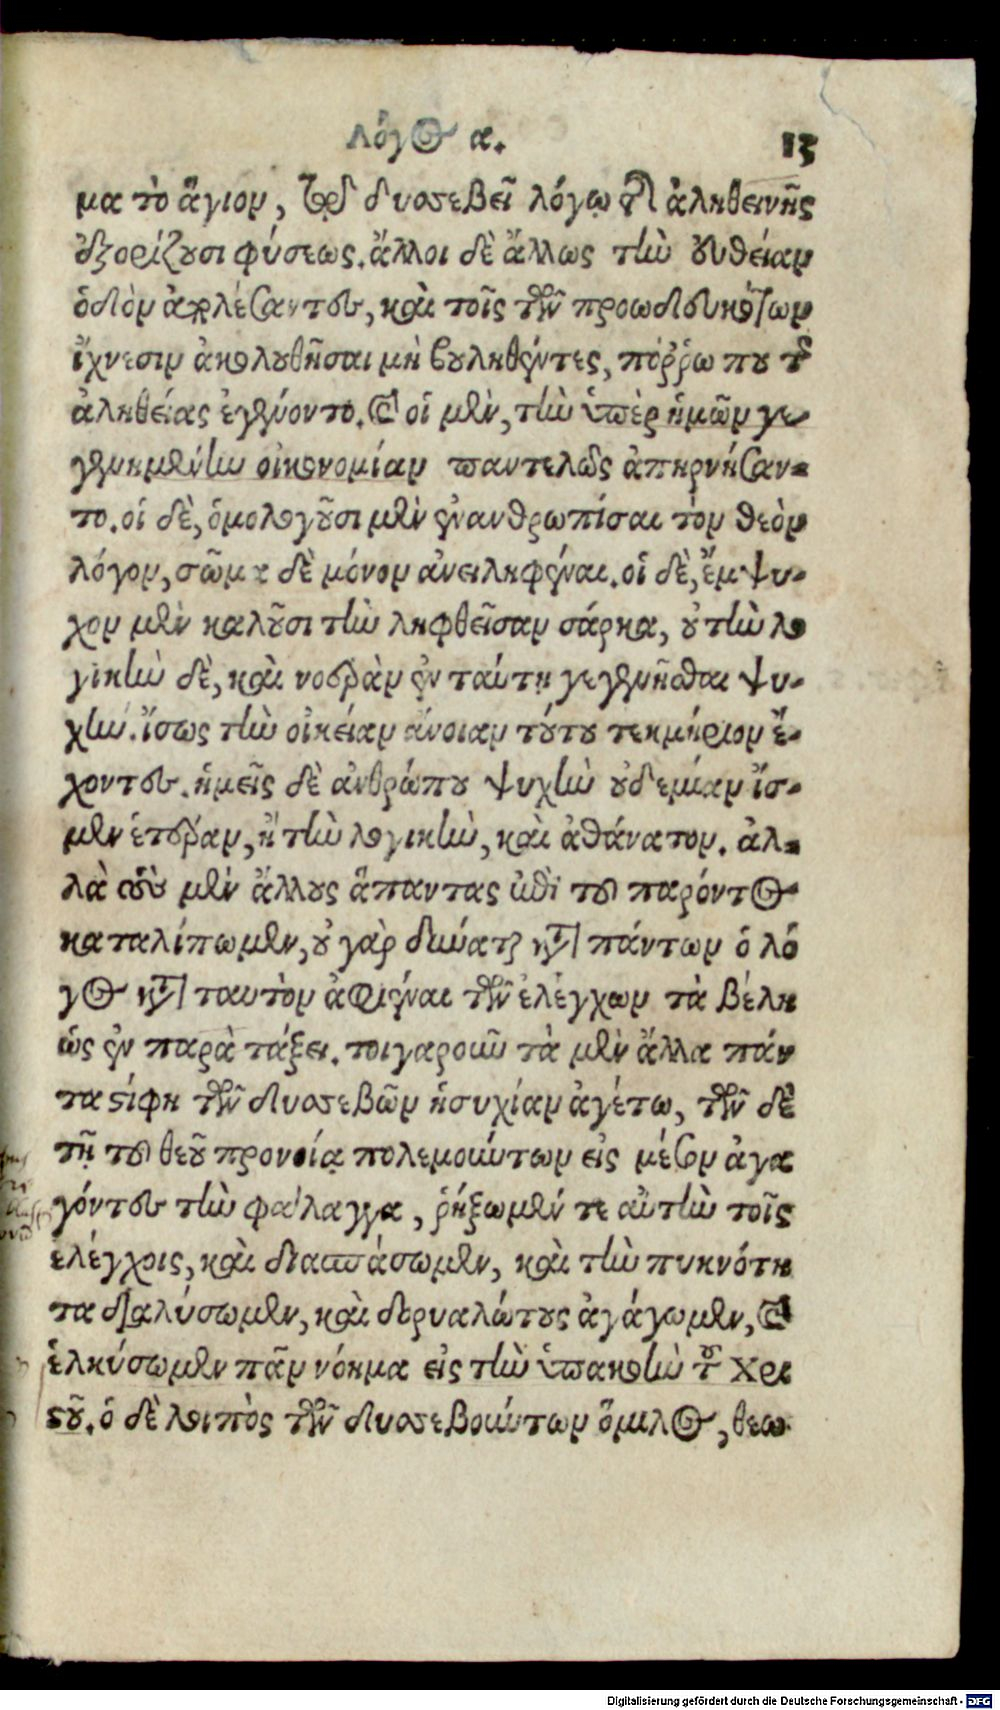 Λόγος α. 13
μα τὸ ἅγιον, τῷ δυσσεβεῖ λόγῳ τῆς ἀληθεινῆς
ἐξορίζουσι φύσεως. ἄλλοι δὲ ἄλλως τὴν εὐθεῖαν
ὁδὸν ἀπολέσαντες, καὶ τοῖς τῶν προωδευκότων
ἴχνεσιν ἀκολουθῆσαι μὴ βουληθέντες, πόῤῥω που τῆς
ἀληθείας ἐγένοντο. καὶ οἱ μὲν, τὴν ὑπὲρ ἡμῶν γε
γενημένην οἰκονομίαν παντελῶς ἀπηρνήσαν-
το. οἱ δὲ, ὁμολογοῦσι μὲν ἐνανθρωπίσαι τὸν θεὸν
λόγον, σῶμα δὲ μόνον ἀνειληφέναι. οἱ δὲ, ἔμψυ-
χον μὲν καλοῦσι τὴν ληφθεῖσαν σάρκα, οὐ τὴν λο
γικὴν δὲ, καὶ νοερὰν ἐν ταύτῃ γεγενῆσθαι ψυ-
χήν. ἴσως τὴν οἰκείαν ἄνοιαν τούτου τεκμήριον ἔ-
χοντες. ἡμεῖς δὲ ἀνθρώπου ψυχὴν οὐδεμίαν ἴσ-
μεν ἑτέραν, ἢ τὴν λογικὴν, καὶ ἀθάνατον. ἀλ-
λὰ τοὺς μὲν ἄλλους ἅπαντας ἐπὶ τοῦ παρόντος
καταλίπωμεν, οὐ γὰρ δύναται κατὰ πάντων ὁ λό
γος κατὰ ταυτὸν ἀφιέναι τῶν ἐλέγχων τὰ βέλη
ὡς ἐν παρὰ τάξει. τοιγαροῦν τὰ μὲν ἄλλα πάν
τα στίφη τῶν δυσσεβῶν ἡσυχίαν ἀγέτω, τῶν δὲ
τῇ τοῦ θεοῦ προνοίᾳ πολεμούντων εἰς μέσον ἀγα
γόντες τὴν φάλαγγα, ῥήξωμέν τε αὐτὴν τοῖς
ἐλέγχοις, καὶ διασπάσωμεν, καὶ τὴν πυκνότη
τα διαλύσωμεν, καὶ δορυαλώτους ἀγάγωμεν, καὶ
ἑλκύσωμεν πᾶν νόημα εἰς τὴν ὑπακοὴν τοῦ Χρι
στοῦ. ὁ δὲ λοιπὸς τῶν δυσσεβούντων ὅμιλος, θεω
Digitalisierung gefördert durch die Deutsche Forschungsgemeinschaft - DFG